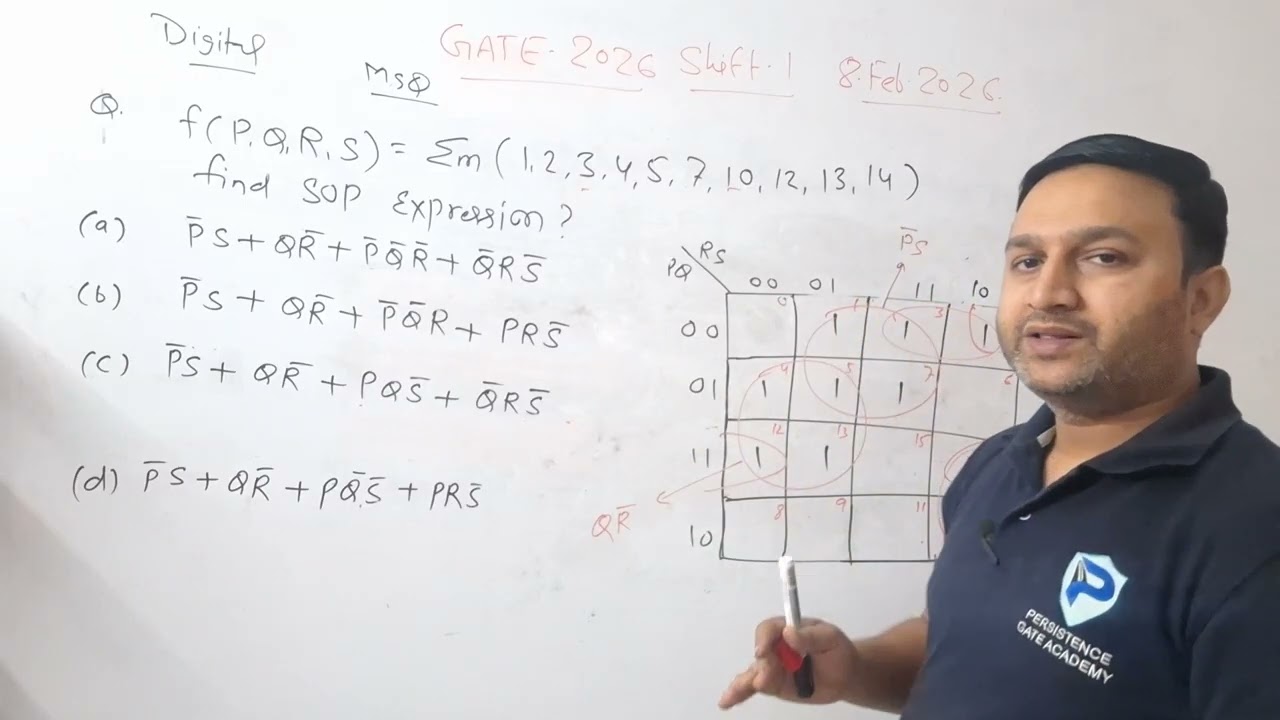 Digital
GATE-2026 Shift-1 8-Feb-2026
MSQ
Q. f(P,Q,R,S) = Σm(1,2,3,4,5,7,10,12,13,14)
find SOP Expression?
(a) P̅S + QR̅ + P̅Q̅R̅ + Q̅RS̅
(b) P̅S + QR̅ + P̅Q̅R + PRS̅
(c) P̅S + QR̅ + PQS̅ + Q̅RS̅
(d) P̅S + QR̅ + PQ̅S̅ + PRS̅
P̅S
RS
PQ
00 01 11 10
0 1 3
00 1 1 1
4 5 7 6
01 1 1 1
12 13 15
11 1 1
8 9 11
10
QR̅
P
PERSISTENCE
GATE ACADEMY